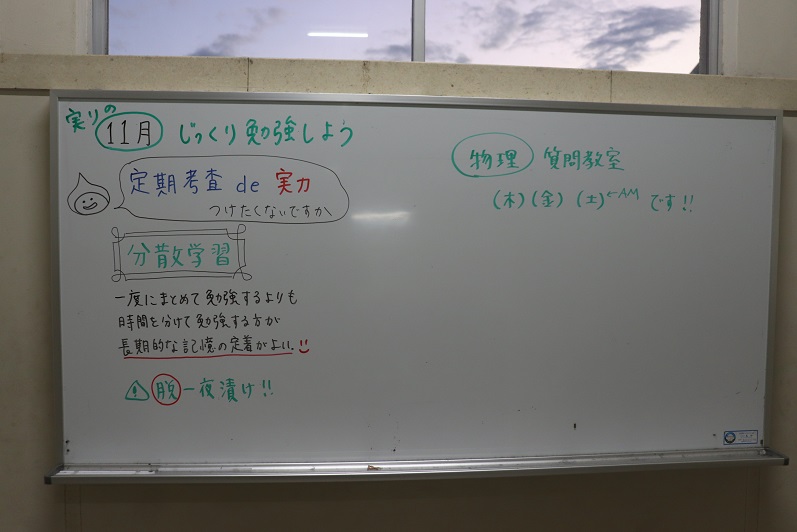 実りの
11月 じっくり勉強しよう
定期考査 de 実力
つけたくないですか
分散学習
一度にまとめて勉強するよりも
時間を分けて勉強する方が
長期的な記憶の定着がよい。
! 脱一夜漬け!!
物理 質問教室
(木)(金) (土)←AM です!!